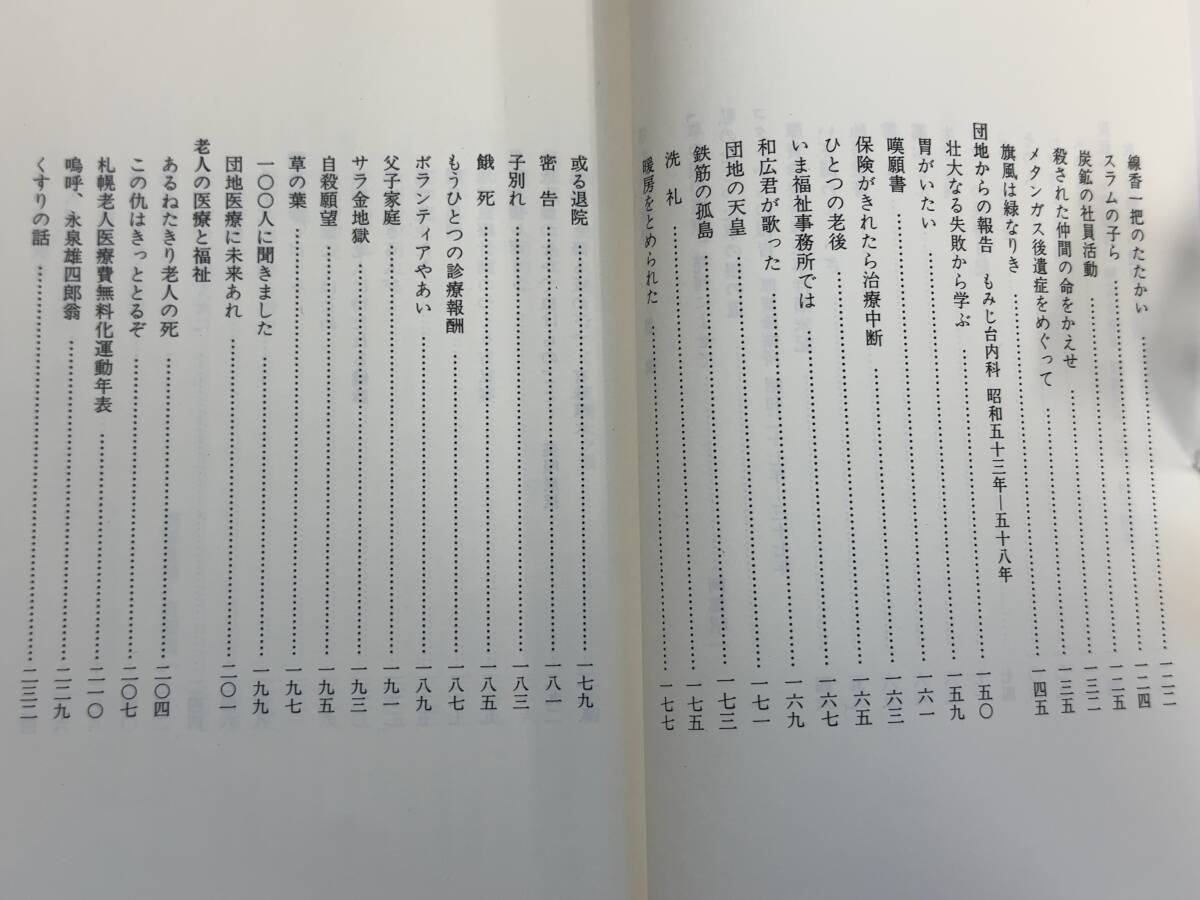 線香一把のたたかい……一二二
スラムの子ら……一二四
炭鉱の社員活動……一二五
殺された仲間の命をかえせ……一三二
メタンガス後遺症をめぐって……一三五
旗風は緑なりき……一四五
団地からの報告　もみじ台内科　昭和五十三年―五十八年
壮大なる失敗から学ぶ……一五〇
胃がいたい……一五九
嘆願書……一六一
保険がきれたら治療中断……一六三
ひとつの老後……一六五
いま福祉事務所では……一六七
和広君が歌った……一六九
団地の天皇……一七一
鉄筋の孤島……一七三
洗礼……一七五
暖房をとめられた……一七七
或る退院……一七九
密告……一八一
子別れ……一八三
餓死……一八五
もうひとつの診療報酬……一八七
ボランティアやあい……一八九
父子家庭……一九一
サラ金地獄……一九三
自殺願望……一九五
草の葉……一九七
一〇〇人に聞きました……一九九
団地医療に未来あれ……二〇一
老人の医療と福祉
あるねたきり老人の死……二〇四
この仇はきっととるぞ……二〇七
札幌老人医療費無料化運動年表……二一〇
嗚呼、永泉雄四郎翁……二二九
くすりの話……二三二